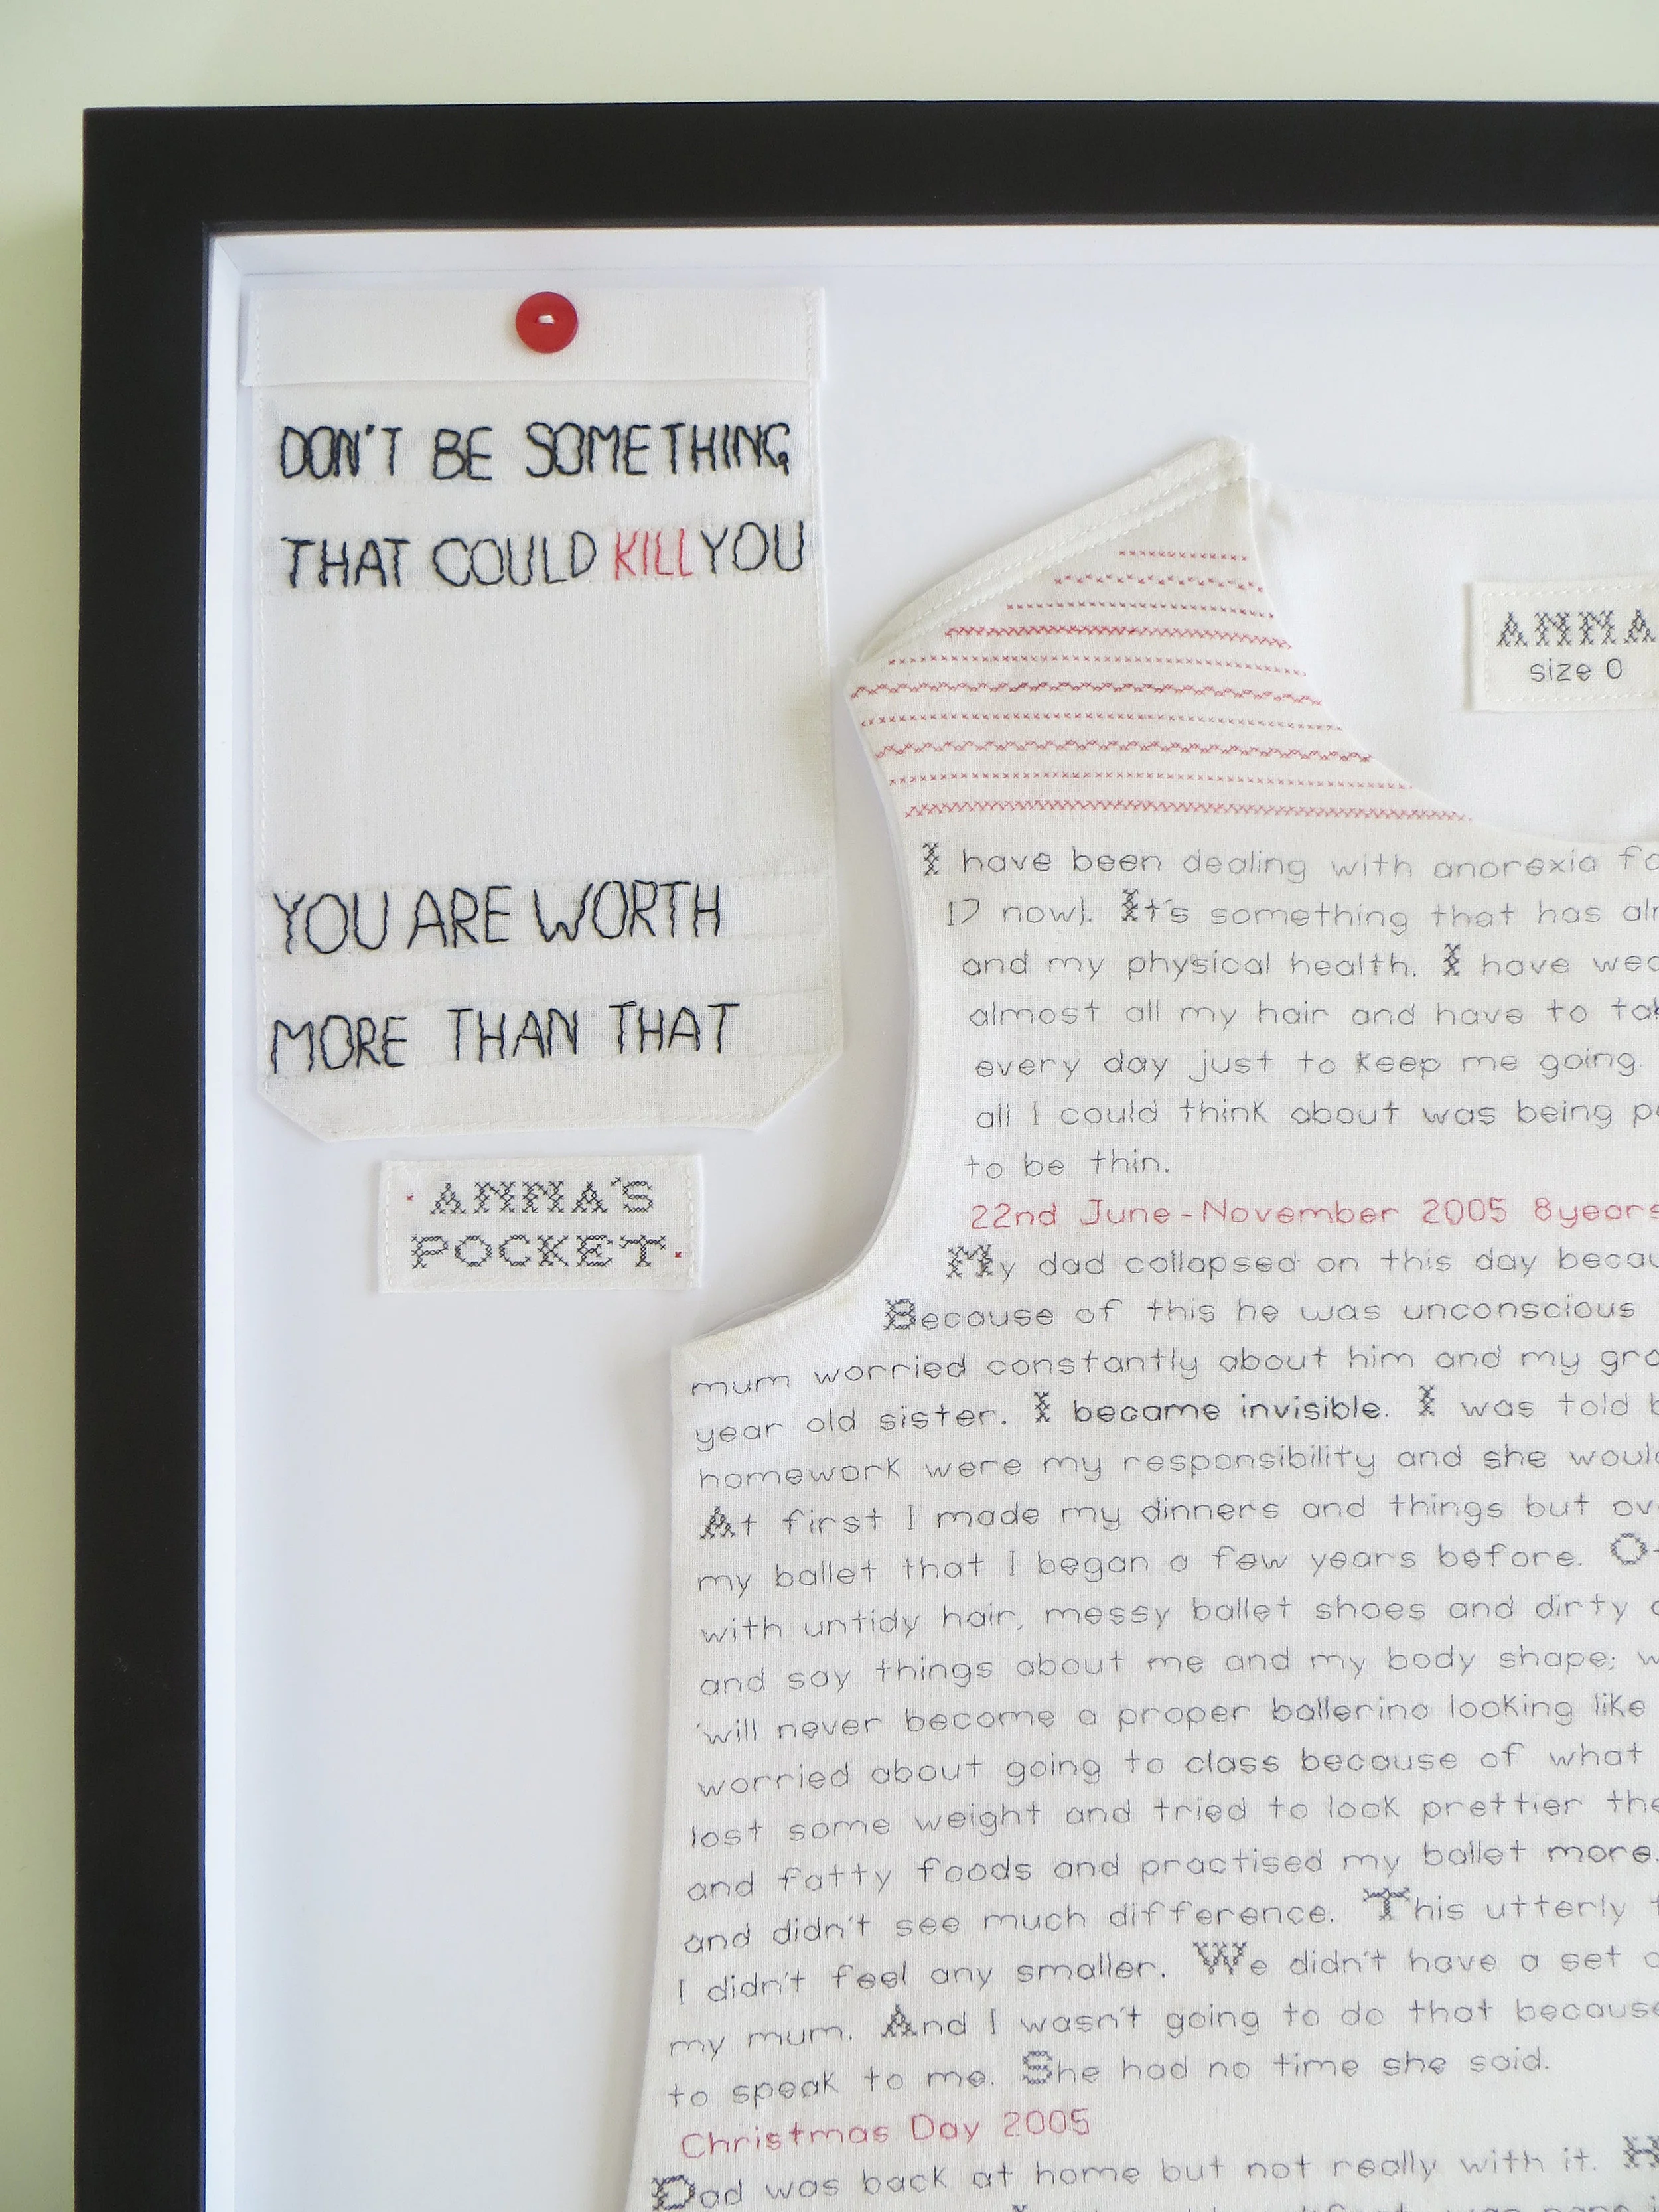 DON'T BE SOMETHING
THAT COULD KILL YOU
YOU ARE WORTH
MORE THAN THAT
ANNA'S
POCKET
ANNA
size 0
I have been dealing with anorexia
17 now). It's something that has
and my physical health. I have
almost all my hair and have to
every day just to keep me going.
all I could think about was being
to be thin.
22nd June - November 2005 8years
My dad collapsed on this day
Because of this he was unconscious
mum worried constantly about him and my
year old sister. I became invisible. I was told
homework were my responsibility and she
At first I made my dinners and things but
my ballet that I began a few years before.
with untidy hair, messy ballet shoes and dirty
and say things about me and my body shape;
'will never become a proper ballerina looking like
worried about going to class because of what
lost some weight and tried to look prettier
and fatty foods and practised my ballet more.
and didn't see much difference. This utterly
I didn't feel any smaller. We didn't have a set
my mum. And I wasn't going to do that because
to speak to me. She had no time she said.
Christmas Day 2005
Dad was back at home but not really with it.